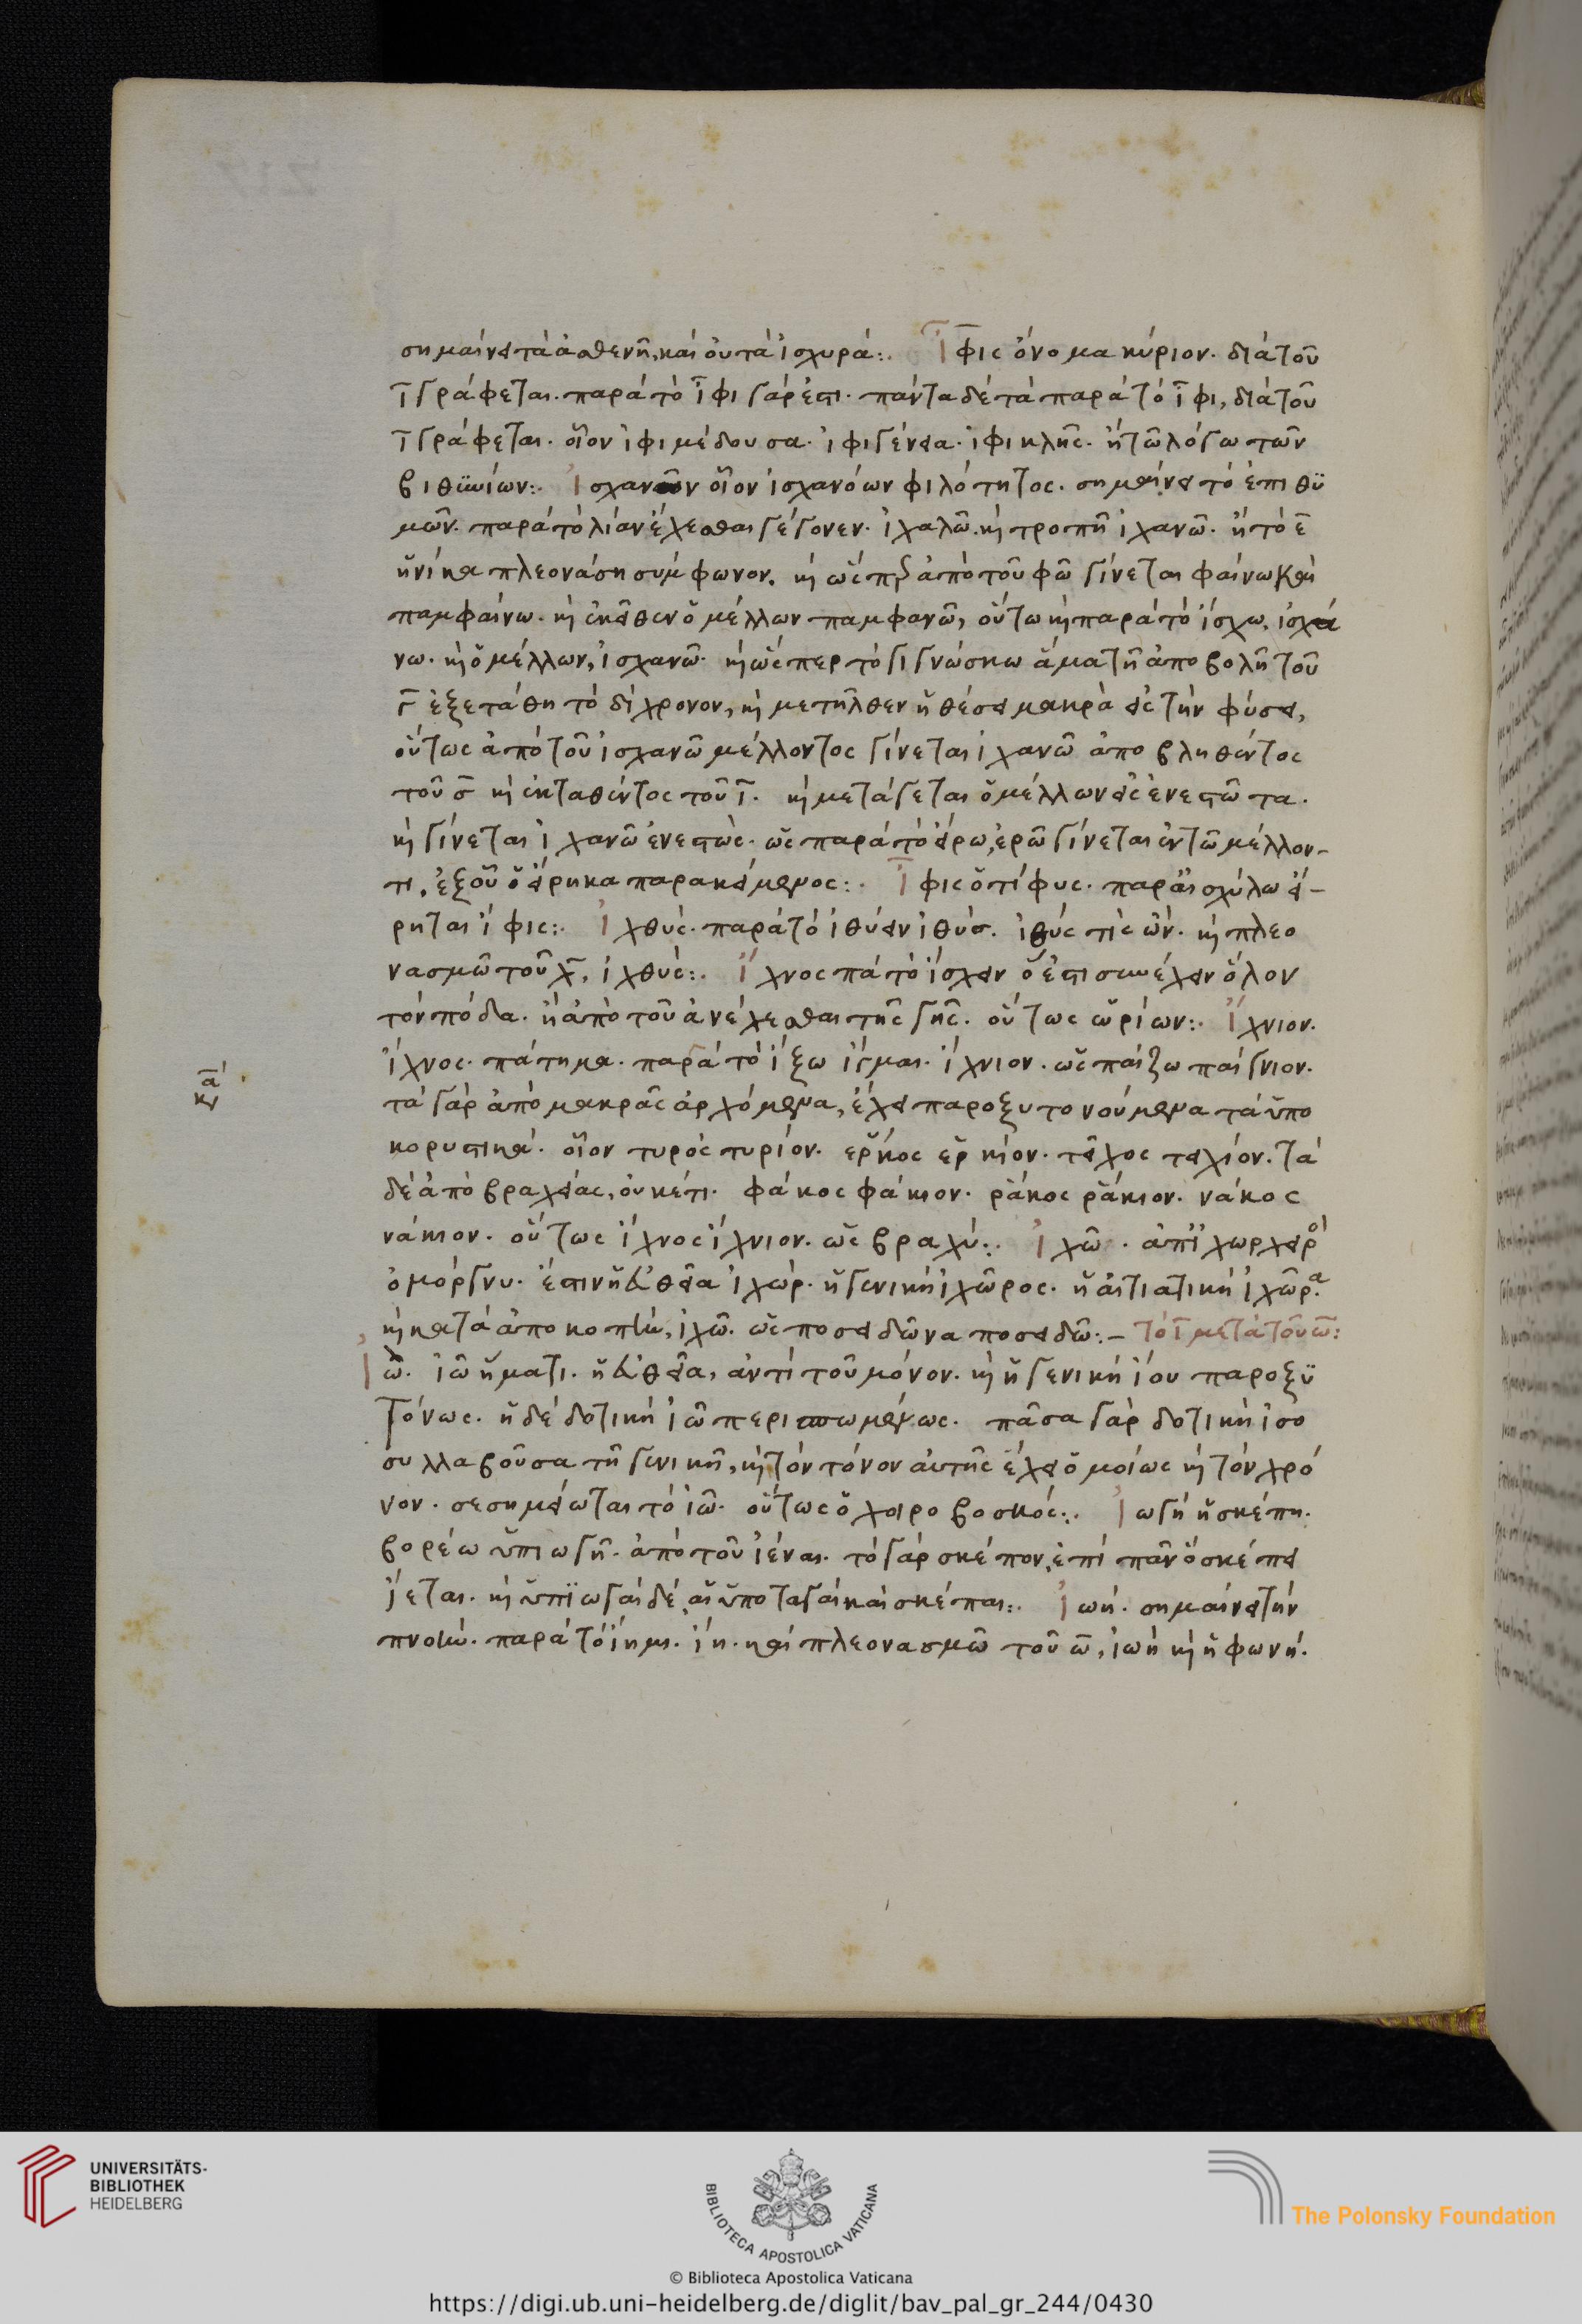 σημαίνει τὰ ἀσθενῆ, καὶ οὐ τὰ ἰσχυρά:. Ἶφις ὄνομα κύριον. διὰ τοῦ
ῑ γράφεται. παρὰ τὸ ἶφι γάρ ἐστι. πάντα δὲ τὰ παρὰ τὸ ἶφι, διὰ τοῦ
ῑ γράφεται. οἷον ἰφιμέδουσα. ἰφιγένεια. ἰφικλῆς. ἢ τῶ λόγω τῶν
βιθυνίων:. Ἰσχανῶν οἷον ἰσχανόων φιλότητος. σημαίνει τὸ ἐπιθυ
μῶν. παρὰ τὸ λίαν ἔχεσθαι γέγονεν. ἰχαλῶ. κὶ τροπῆ ἰχανῶ. ἢ τὸ ε̄
ἡνίκα πλεονάση σύμφωνον. κὶ ὥσπερ ἀπὸ τοῦ φῶ γίνεται φαίνω καὶ
παμφαίνω. κὶ ἐκεῖθεν ὁ μέλλων παμφανῶ, οὕτω κὶ παρὰ τὸ ἴσχω, ἰσχά
νω. κὶ ὁ μέλλων, ἰσχανῶ. κὶ ὥσπερ τὸ γιγνώσκω ἅμα τῆ ἀποβολῆ τοῦ
γ̄ ἐξετάθη τὸ δίχρονον, κὶ μετῆλθεν ἡ θέσει μακρὰ εἰς τὴν φύσει,
οὕτως ἀπὸ τοῦ ἰσχανῶ μέλλοντος γίνεται ἰχανῶ ἀποβληθέντος
τοῦ σ̄ κὶ ἐκταθέντος τοῦ ῑ. κὶ μετάγεται ὁ μέλλων εἰς ἐνεστῶτα.
κὶ γίνεται ἰχανῶ ἐνεστώς. ὡς παρὰ τὸ εἴρω, ἐρῶ γίνεται ἐν τῶ μέλλον-
τι. ἐξ οὗ ὁ εἴρηκα παρακείμενος:. Ἶφις ὁ τίφυς. παρ' αἰσχύλω εἴ-
ρηται ἶφις:. Ἰχθύς. παρὰ τὸ ἰθύειν ἰθύσ. ἰθύς τις ὤν. κὶ πλεο
νασμῶ τοῦ χ̄, ἰχθύς:. Ἴχνος πά τὸ ἴσχειν ὅ ἐστι συνέχειν ὅλον
τὸν πόδα. ἢ ἀπὸ τοῦ ἀνέχεσθαι τῆς γῆς. οὕτως ὠρίων:. Ἴχνιον.
ἴχνος. πάτημα. παρὰ τὸ ἵξω ἷγμαι. ἴχνιον. ὡς παίζω παίγνιον.
τὰ γὰρ ἀπὸ μακρᾶς ἀρχόμενα, ἔχει παροξυτονούμενα τὰ ὑπο
κοριστικά. οἷον τυρός τυρίον. ἕρκος ἑρκίον. τεῖχος τειχίον. τὰ
δὲ ἀπὸ βραχείας, οὐκέτι. φάκος φάκιον. ῥάκος ῥάκιον. νάκος
νάκιον. οὕτως ἴχνος ἴχνιον. ὡς βραχύ:. Ἰχῶ. ἀπ' ἰχῶ χειρὸ
ὀμόργνυ. ἔστιν ἡ εὐθεῖα ἰχώρ. ἡ γενικὴ ἰχῶρος. ἡ αἰτιατικὴ ἰχῶρα.
κὶ κατὰ ἀποκοπὴν, ἰχῶ. ὡς ποσειδῶνα ποσειδῶ:- τὸ ῑ μετὰ τοῦ ω̄:
Ἰῶ. ἰῶ ἤματι. ἡ εὐθεῖα, ἀντὶ τοῦ μόνον. κὶ ἡ γενικὴ ἰου παροξυ
τόνως. ἡ δὲ δοτικὴ ἰῶ περισπωμένως. πᾶσα γὰρ δοτικὴ ἰσο
συλλαβοῦσα τῆ γενικῆ, κὶ τὸν τόνον αὐτῆς ἔχει ὁμοίως κὶ τὸν χρό
νον. σεσημείωται τὸ ἰῶ. οὕτως ὁ χοιροβοσκός:. Ἰωγή ἡ σκέπη.
βορέω ὑπ' ἰωγῆ. ἀπὸ τοῦ ἰέναι. τὸ γὰρ σκέπον, ἐπὶ πᾶν ὃ σκέπει
ἵεται. κὶ ὑπϊωγαὶ δὲ, αἱ ὑποταγαὶ καὶ σκέπαι:. Ἰωή. σημαίνει τὴν
πνοὴν. παρὰ τὸ ἵημι. ἵη. καὶ πλεονασμῶ τοῦ ω̄, ἰωὴ κὶ ἡ φωνή.
UNIVERSITÄTS-
BIBLIOTHEK
HEIDELBERG
BIBLIOTECA APOSTOLICA VATICANA
The Polonsky Foundation
© Biblioteca Apostolica Vaticana
https://digi.ub.uni-heidelberg.de/diglit/bav_pal_gr_244/0430